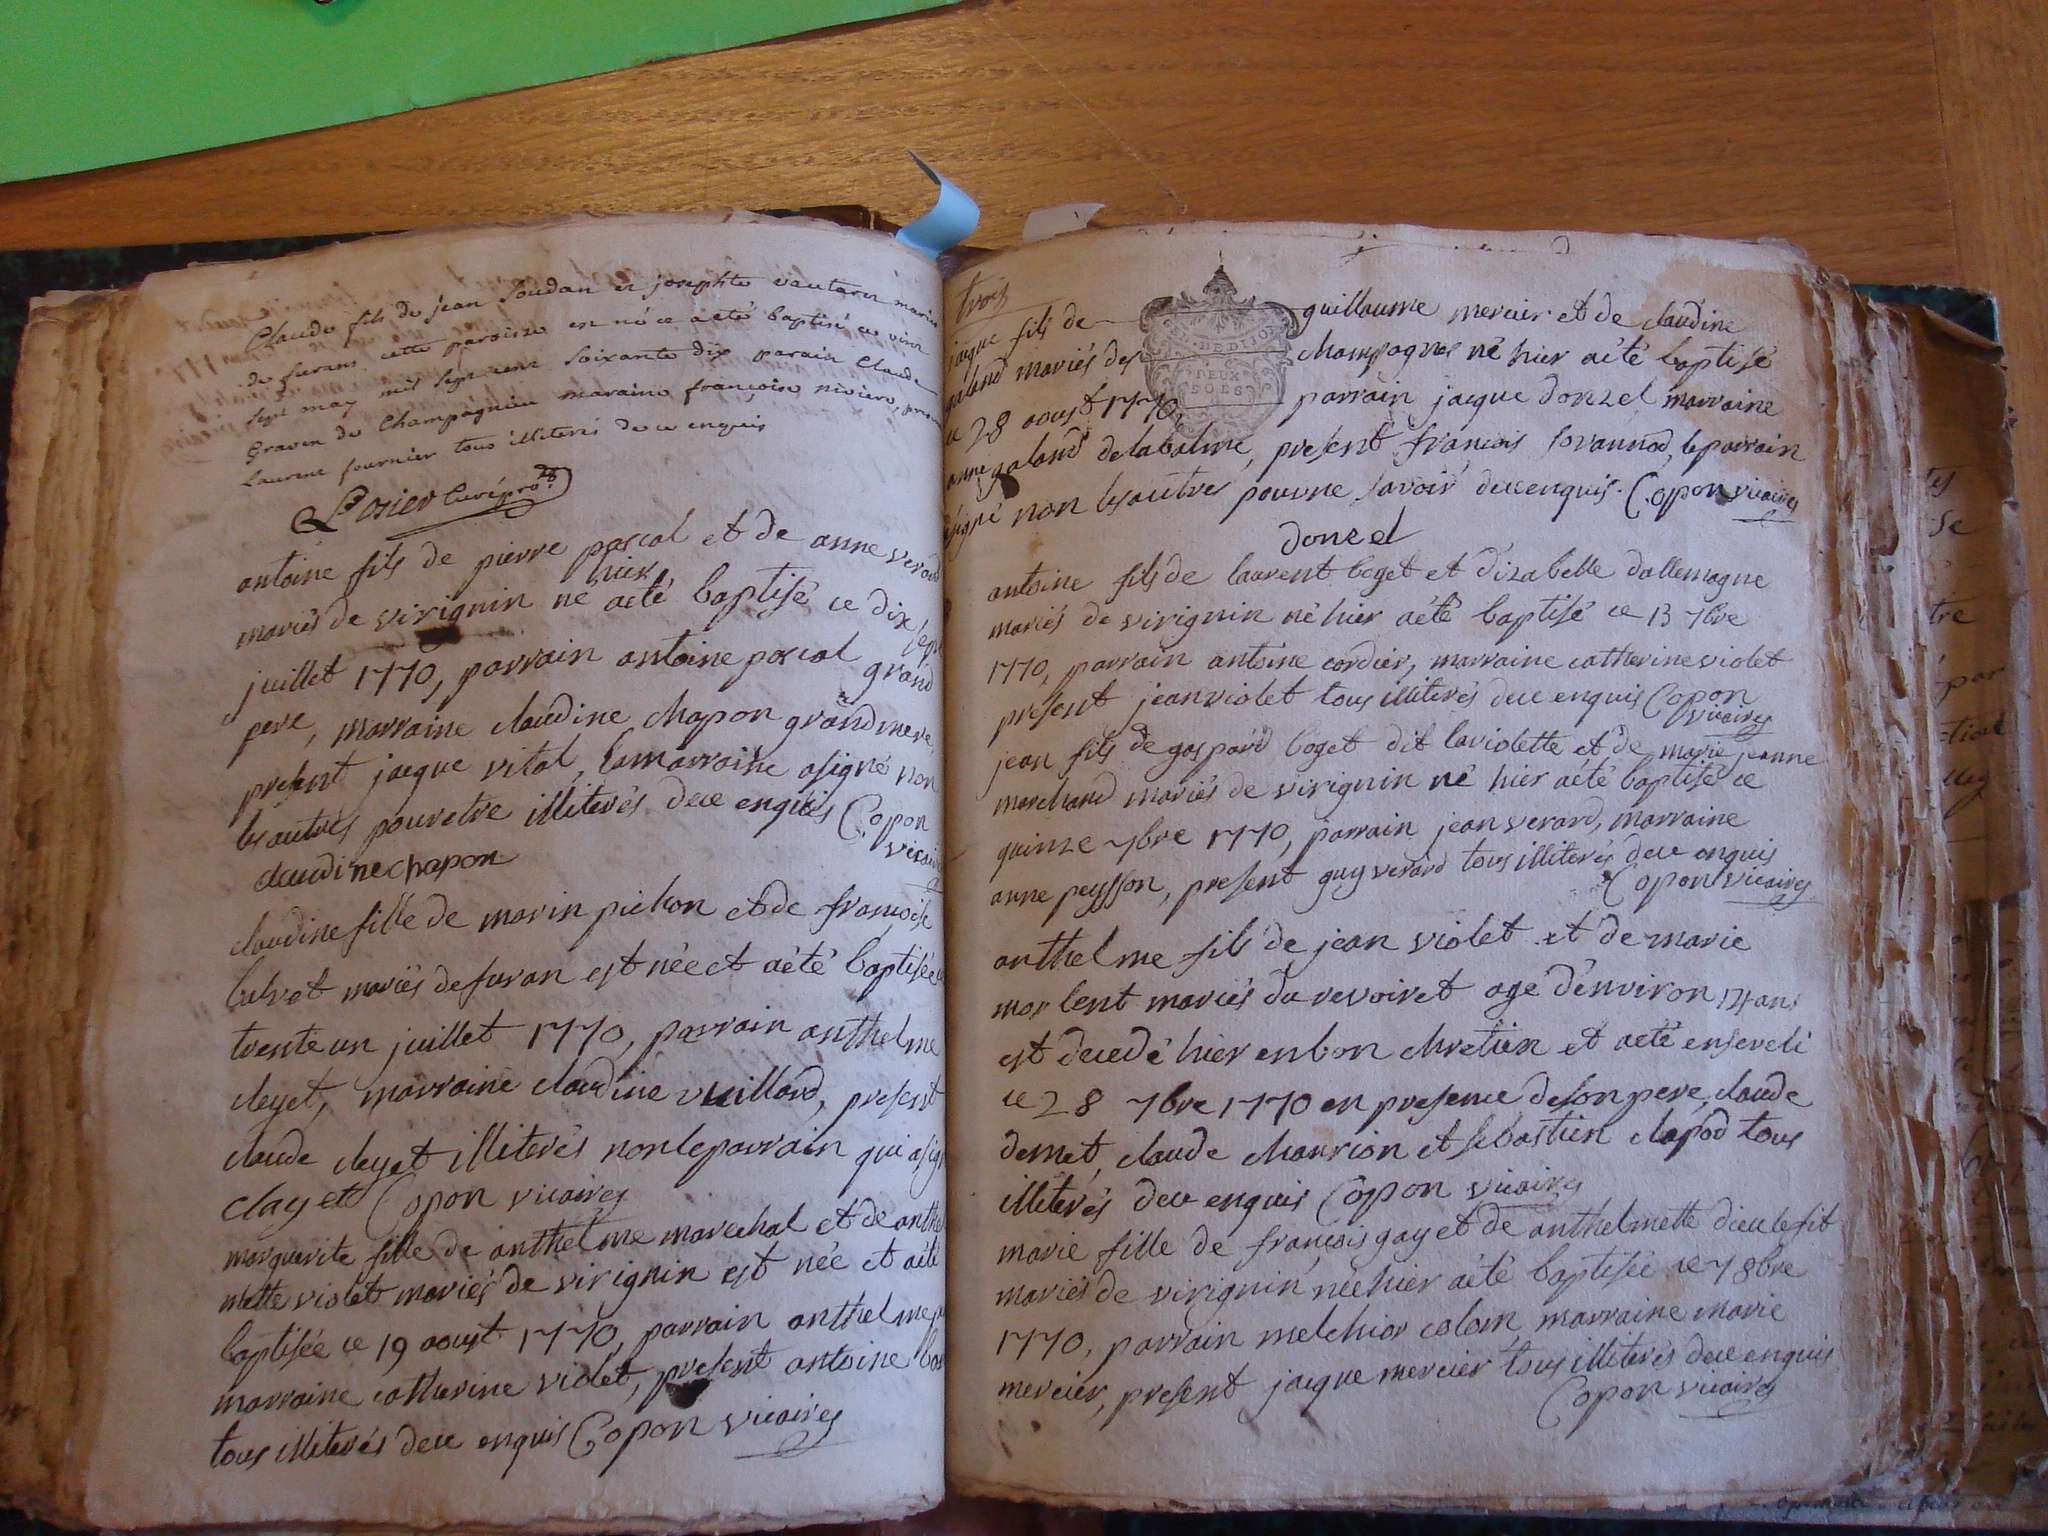 Claude fils de jean Soudan et josephte vautaret mariés
de furans cette paroisse est né ce a eté baptisé ce vint
sept may mil sept cent soixante dix parain Claude
Graven de Champagnieu maraine françoise riviere,
Laurent fournier tous illiterés de ce enquis
Rosier Curé
antoine fils de pierre pascal et de anne verard
hier
mariés de virignin né aeté baptisé ce dix sept
juillet 1770, parrain antoine pascal grand
pere, marraine claudine chapon grandmere
present jacque vital, la marraine asigné non
les autres pour etre illiterés dece enquis Copon
vicaire
claudine chapon
claudine fille de marin pichon et de françoise
mariés de furan est née et aété baptisée ce
trente un juillet 1770, parrain anthelme
cleyet, marraine claudine vuillard, present
claude cleyet illiterés non le parrain qui asigné
clayet Copon vicaires
marguerite fille de anthelme marechal et de anthel
mette violet mariés de virignin est née et aété
baptisée ce 19 aoust 1770, parrain anthelme
marraine catherine violet, present antoine
tous illiterés dece enquis Copon vicaires
trois
jaque fils de guillaume mercier et de claudine
galand mariés des champagnes né hier aété baptisé
DE DIJON
DEUX
SOLS
ce 28 aoust 1770, parrain jacque donzel marraine
anne galand delabalme, present françois Jorannod, le parrain
signé non les autres pour ne savoir dece enquis. Copon vicaires
donzel
antoine fils de laurent boget et d'izabelle dallemagne
mariés de virignin né hier aété baptisé ce 13 7bre
1770, parrain antoine cordier, marraine catherine violet
present jean violet tous illiterés dece enquis Copon
vicaires
jean fils de gaspard boget dit laviolette et de marie jeanne
marchand mariés de virignin né hier aété baptisé ce
quinze 7bre 1770, parrain jean verard, marraine
anne peysson, present guy verard tous illiterés dece enquis
Copon vicaires
anthelme fils de jean violet et de marie
morlent mariés du revoiret agé d'environ 14 ans
est decedé hier en bon chretien et aeté enseveli
ce 28 7bre 1770 en presence de son pere, claude
demet, claude chaurion et sebastien clapod tous
illiterés dece enquis Copon vicaires
marie fille de françois gay et de anthelmette dieulefit
mariés de virignin née hier aété baptisée ce 7 8bre
1770, parrain melchior colom, marraine marie
mercier, present jacque mercier tous illiterés dece enquis
Copon vicaires